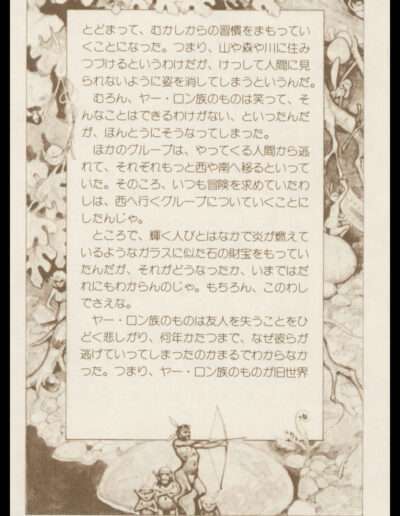 とどまって、むかしからの習慣をまもってい
くことになった。つまり、山や森や川に住み
つづけるというわけだが、けっして人間に見
られないように姿を消してしまうというんだ。
むろん、ヤー・ロン族のものは笑って、そ
んなことはできるわけがない、といったんだ
が、ほんとうにそうなってしまった。
ほかのグループは、やってくる人間から逃
れて、それぞれもっと西や南へ移るといって
いた。そのころ、いつも冒険を求めていたわ
しは、西へ行くグループについていくことに
したんじゃ。
ところで、輝く人びとはなかで炎が燃えて
いるようなガラスに似た石の財宝をもってい
たんだが、それがどうなったか、いまではだ
れにもわからんのじゃ。もちろん、このわし
でさえな。
ヤー・ロン族のものは友人を失うことをひ
どく悲しがり、何年かたつまで、なぜ彼らが
逃げていってしまったのかまるでわからなか
った。つまり、ヤー・ロン族のものが旧世界